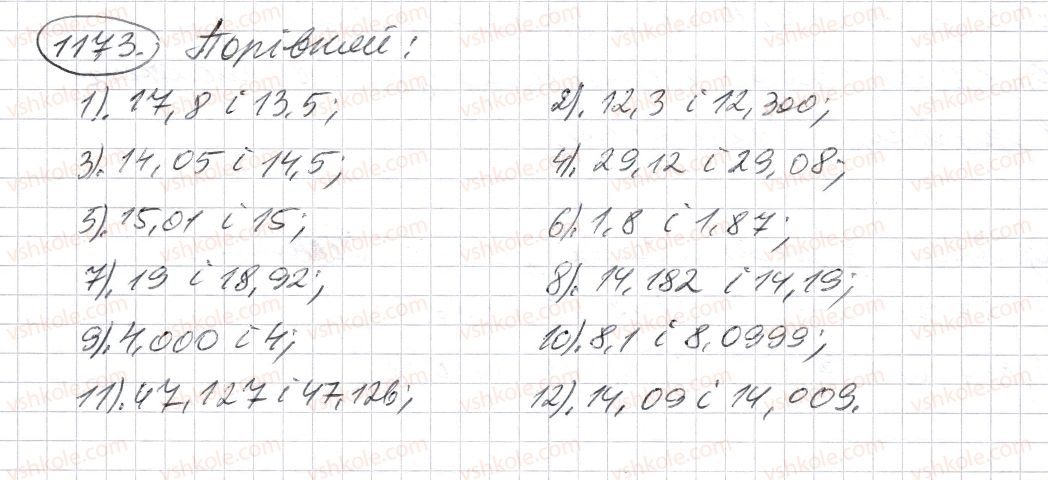 1173. Порівняй:
1). 17,8 і 13,5; 2). 12,3 і 12,300;
3). 14,05 і 14,5; 4). 29,12 і 29,08;
5). 15,01 і 15; 6). 1,8 і 1,87;
7). 19 і 18,92; 8). 14,182 і 14,19;
9). 4,000 і 4; 10). 8,1 і 8,0999;
11). 47,127 і 47,126; 12). 14,09 і 14,009.
vshkole.com